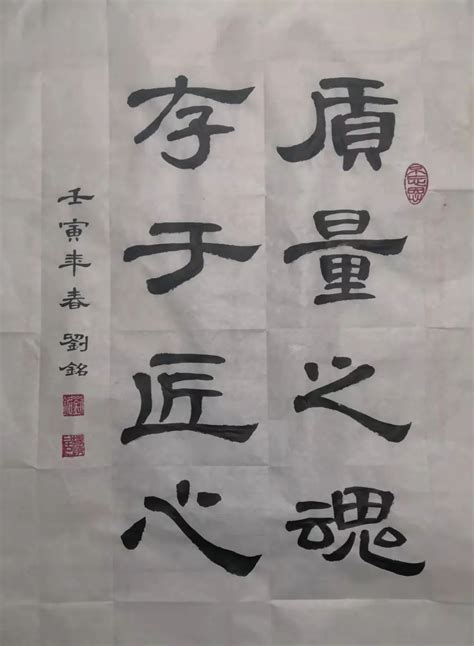 质量之魂
存于匠心
壬寅年春劉銘